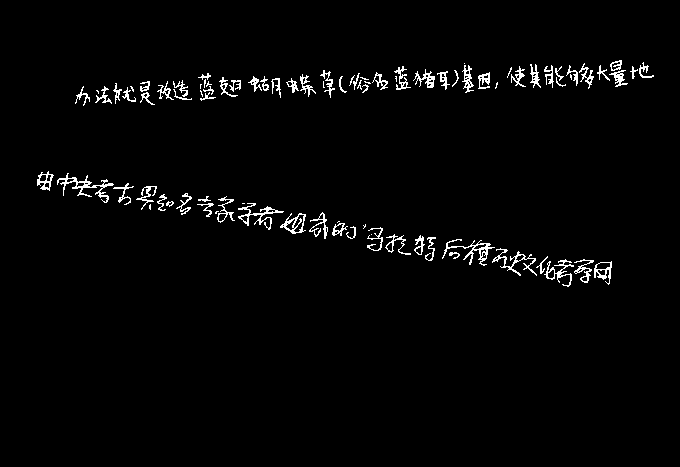 办法就是改造蓝翅蝴蝶草(俗名蓝猪耳)基因,使其能够大量地
由中央考古界知名专家学者组成的‘马拉特后裔历史文化考察团